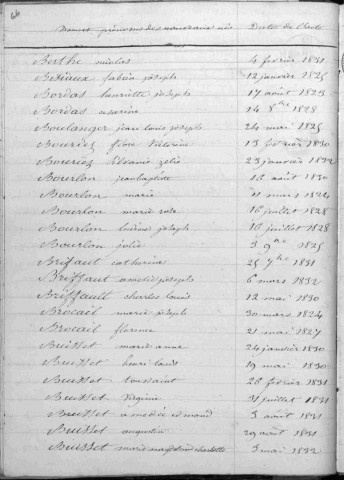 66
Noms et prénoms des nouveaux nés Dates de l'acte
Berthe nicolas 4 février 1831
Betiaux fabien joseph 12 janvier 1825
Bordas henriette joseph 17 aout 1823
Bordas 14 8bre 1828
Boulanger jean louis joseph 24 mai 1825
Bouriez flore victoire 13 février 1830
Bouriez zélie 23 janvier 1832
Bourlon jean baptiste 16 aout 1830
Bourlon marie 11 mars 1824
Bourlon marie rose 16 juillet 1828
Bourlon joseph 16 juillet 1828
Bourlon jolie 3 9bre 1825
Briffaut catherine 25 7bre 1831
Briffaut amédée joseph 6 mars 1832
Briffault charles louis 12 mai 1830
Brocail marie joseph 30 mars 1824
Brocail florence 21 mai 1827
Buisset marie anne 24 janvier 1830
Buisset henri louis 19 mai 1830
Buisset toussaint 28 février 1831
Buisset Virginie 31 juillet 1831
Buisset amédée edmond 3 aout 1831
Buisset augustin 29 aout 1831
Buisset marie magdelaine charlotte 3 mai 1832